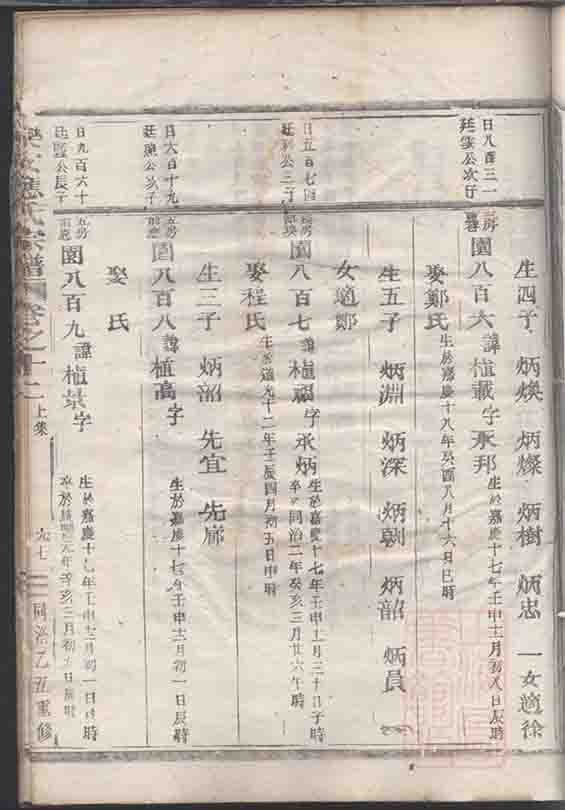 生四子 炳煥 炳燦 炳樹 炳忠 一女適徐
日八百三一
廷雲公次子
園八百六 諱植載 字永邦 生於嘉慶十七年壬申十二月初八日辰時
娶鄭氏 生於嘉慶十八年癸酉八月十六日巳時
生五子 炳淵 炳深 炳朝 炳韶 炳員
女適鄭
日五百七四
公三子
園八百七 諱植 字永炳 生於嘉慶十七年壬申十二月三十日子時
卒於同治二年癸亥三月廿六午時
娶程氏 生於道光十二年壬辰四月初五日申時
生三子 炳韶 先宜 先廊
日六百十九
廷 公次子
五房
園八百八 諱植高 字 生於嘉慶十七年壬申十二月初一日辰時
娶 氏
日九百六十
廷 公長子
五房
園八百九 諱植景 字 生於嘉慶十七年壬申十二月初一日 時
卒於 元年辛亥三月初 日 時
應氏宗譜 卷之十二 上集 九七 同治乙丑重修